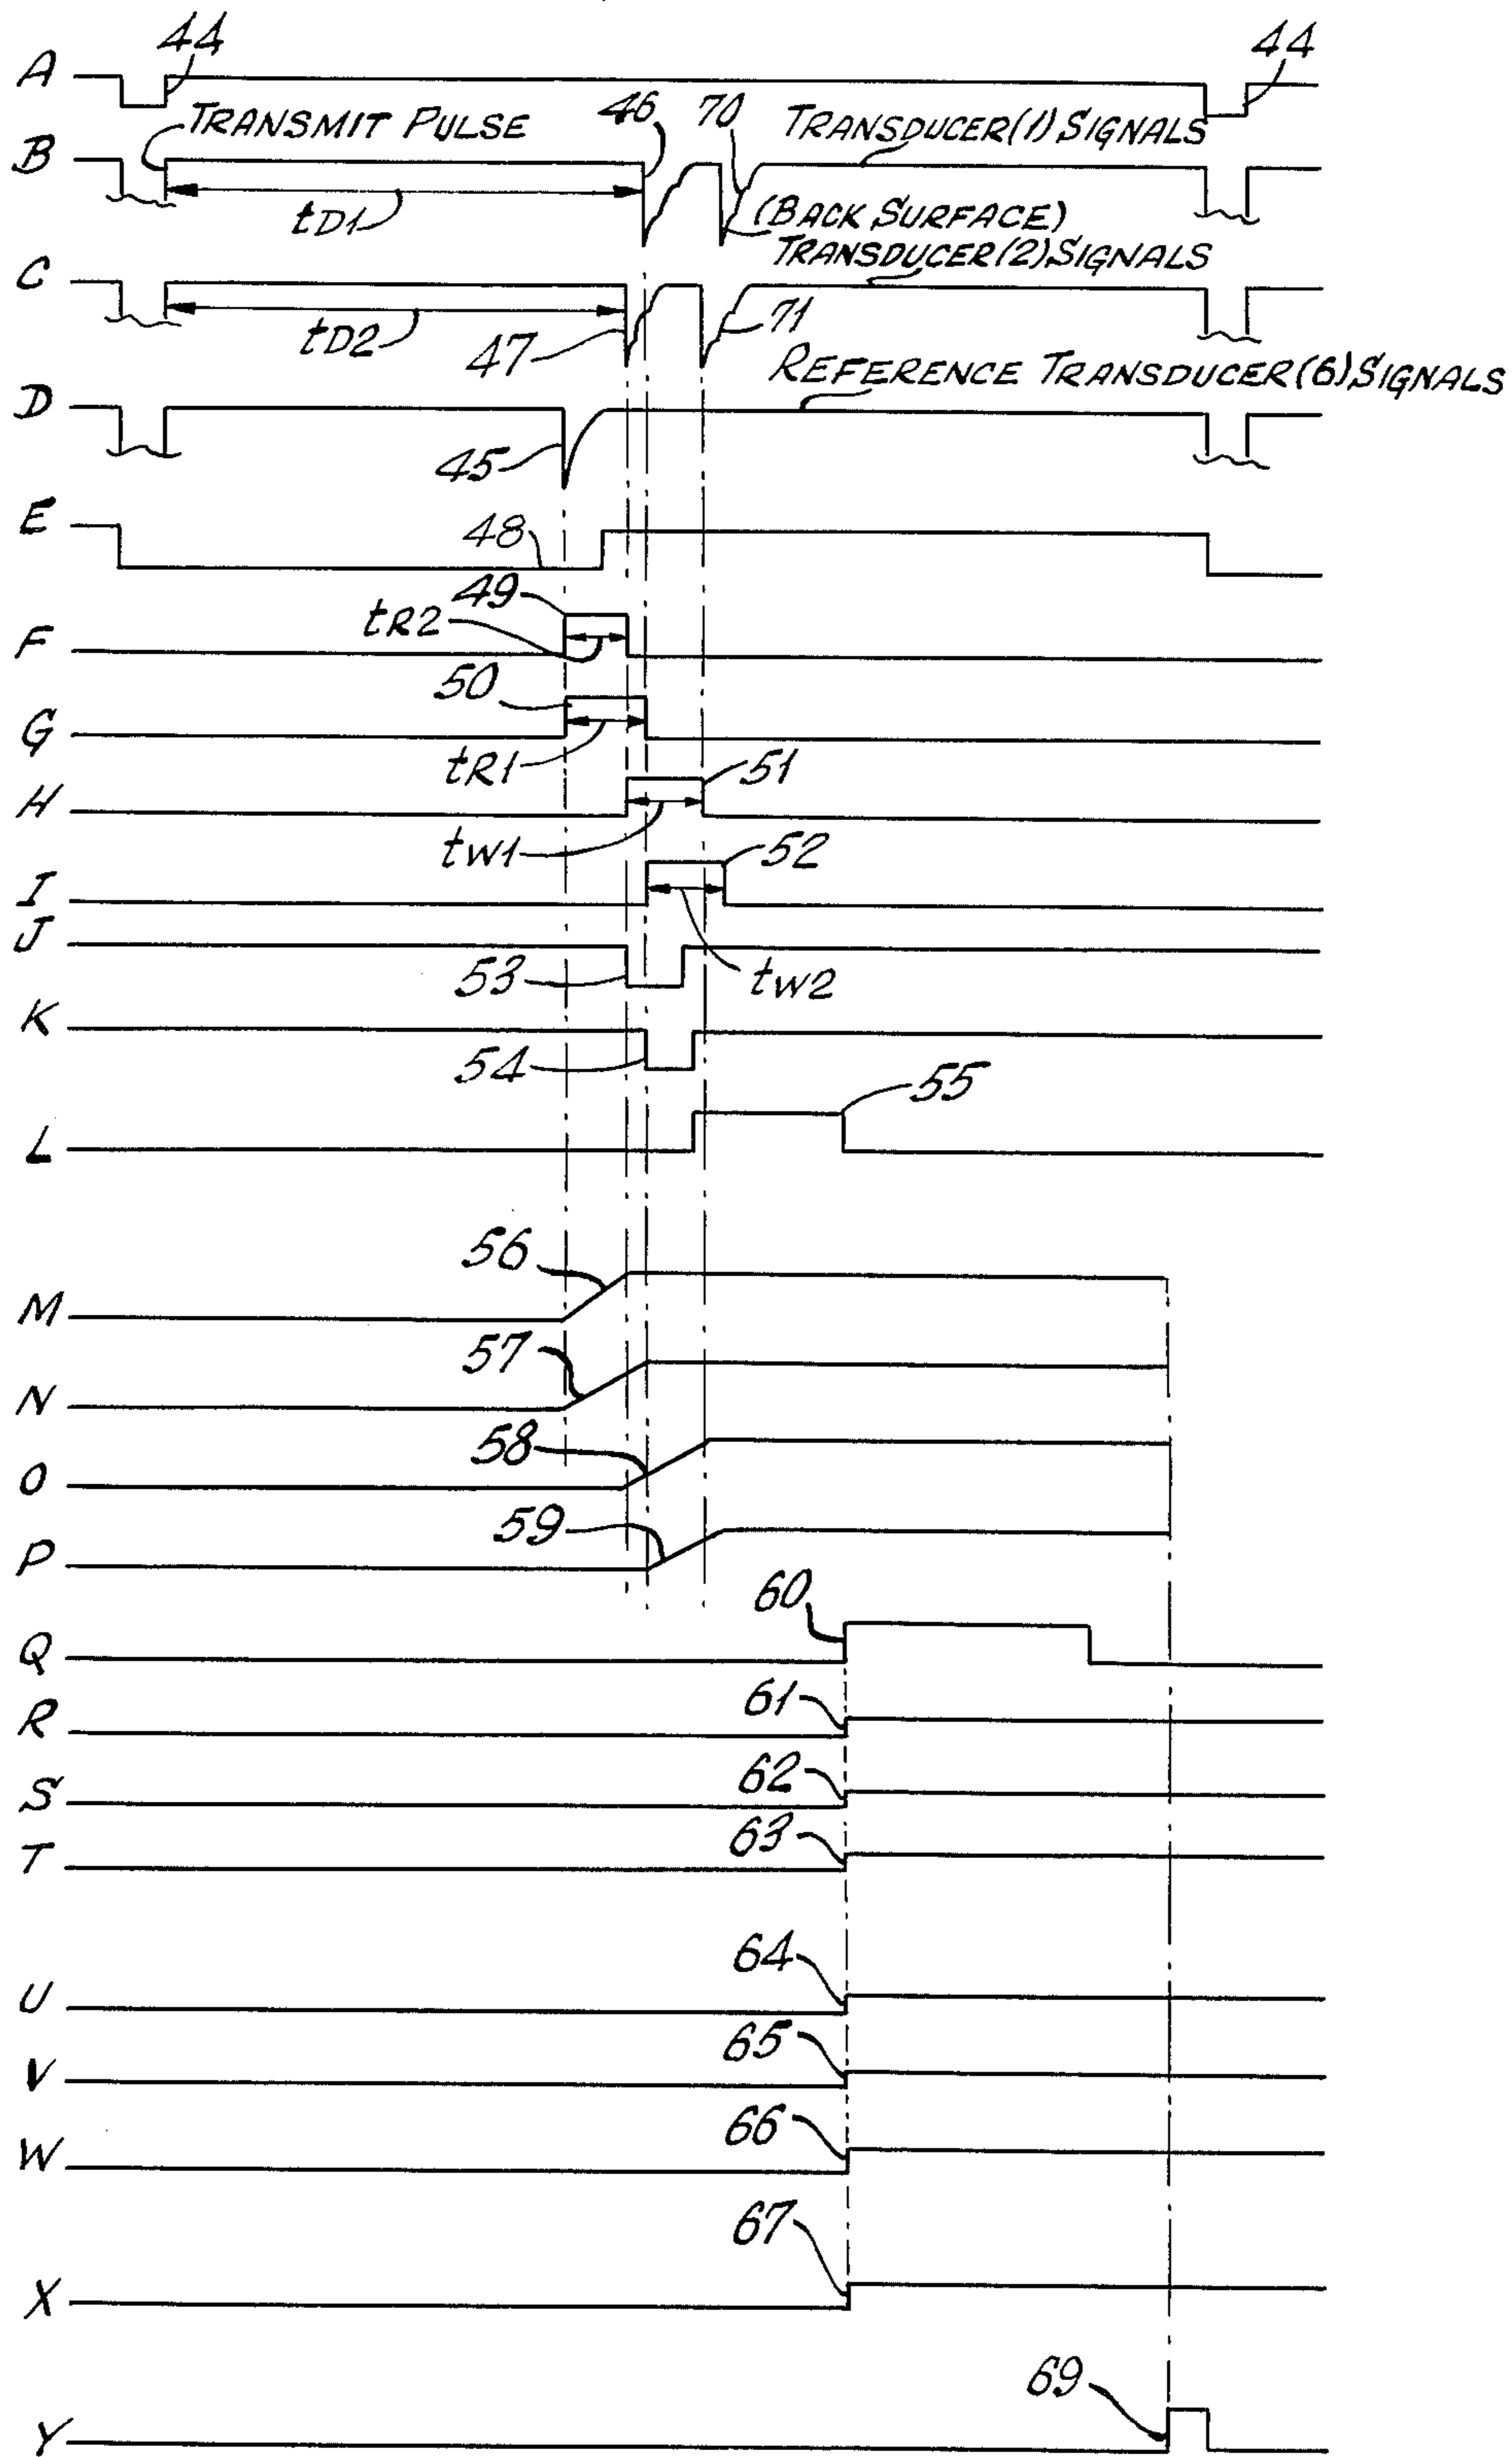 44
44
A
TRANSMIT PULSE
46
70
TRANSDUCER(1)SIGNALS
B
tD1
(BACK SURFACE)
TRANSDUCER(2)SIGNALS
C
tD2
47
71
REFERENCE TRANSDUCER(6)SIGNALS
D
45
E
48
49
tR2
F
50
G
tR1
51
H
tW1
52
I
J
53
tW2
K
54
55
L
56
M
57
N
58
O
59
P
60
Q
61
R
62
S
63
T
64
U
65
V
66
W
67
X
69
Y